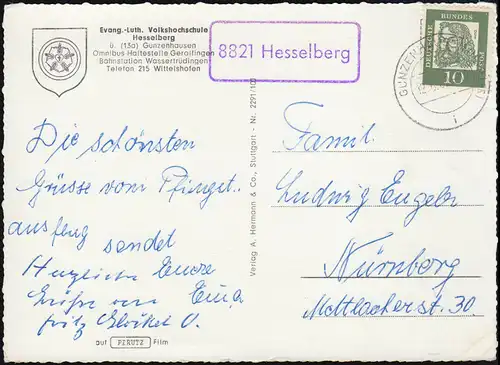 Evang.-Luth. Volkshochschule
Hesselberg
ü. (13a) Gunzenhausen
Omnibus Haltestelle Gerolfingen
Bahnstation Wassertrüdingen
Telefon 215 Wittelshofen
8821 Hesselberg
DEUTSCHE BUNDESPOST
10
GUNZEN
Die schönsten
Grüsse vom Pfingst-
ausflug sendet
Herzliche
Grüße von
Fritz
Famil.
Ludwig Engeler
Nürnberg
Mettlacherst. 30.
Verlag A. Hermann & Co., Stuttgart - Nr. 2291/103
auf PERUTZ Film